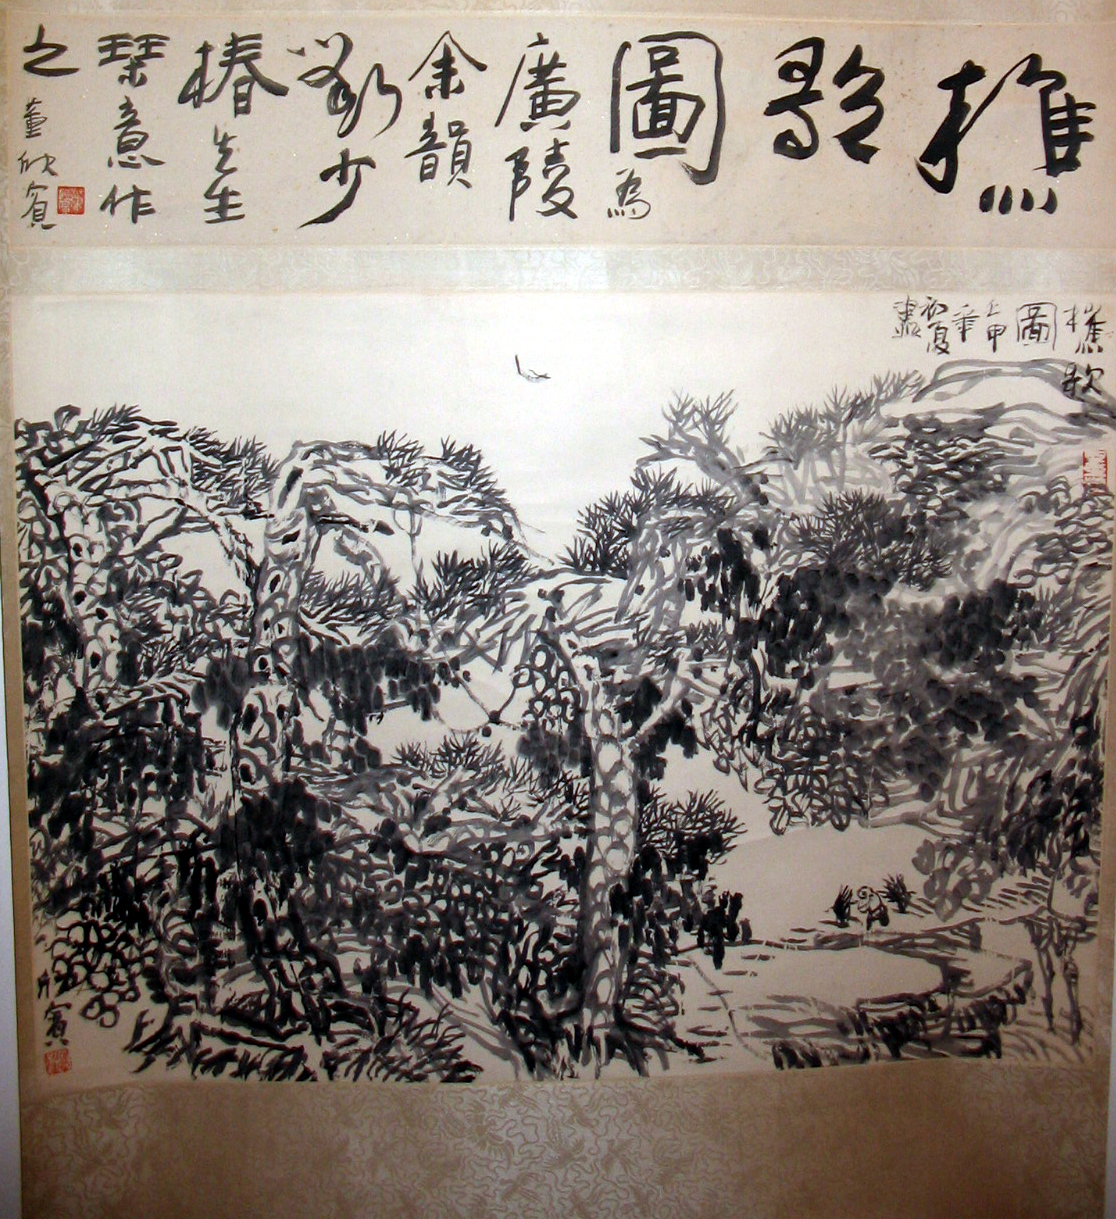 樵
歌
圖為
廣陵
余韻
劉少
椿先生
琹意作
之董欣賓
樵歌
圖
上甲
年
初夏
欣賓